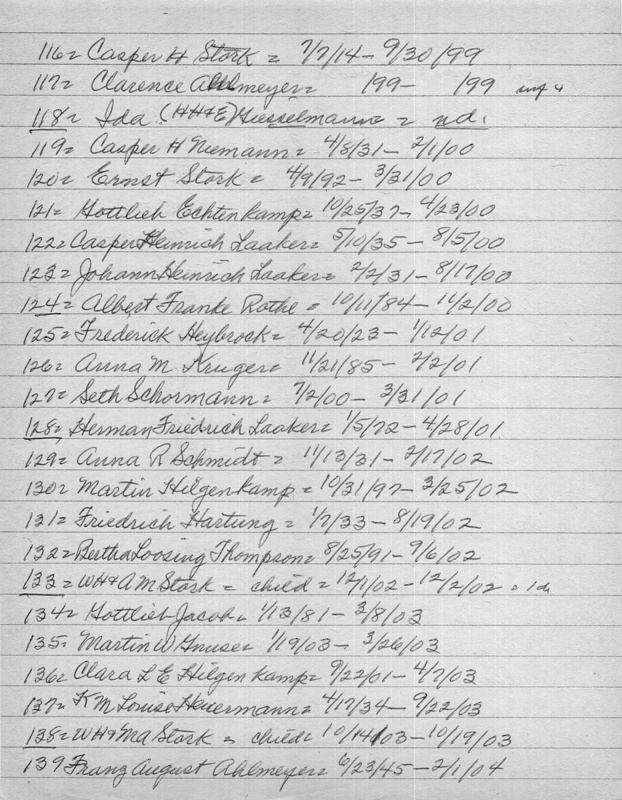 116= Casper H Stork = 7/7/14 - 9/30/99
117= Clarence Ahlmeyer= 199- 199
118= Ida (HH&E) Hesselmann = nd.
119= Casper H Niemann= 4/8/31 - 2/1/00
120= Ernst Stork = 4/9/92 - 3/31/00
121= Gottlieb Echtenkamp= 10/25/37 - 4/23/00
122= Casper Heinrich Laaker= 5/10/35 - 8/5/00
123= Johann Heinrich Laaker= 2/2/31 - 8/17/00
124= Albert Franke Rothe = 10/11/84 - 11/2/00
125= Frederick Heybrock= 4/20/23 - 1/12/01
126= Anna M. Kruger= 11/21/85 - 2/2/01
127= Seth Schormann= 7/2/00 - 3/31/01
128= Herman Friedrich Laaker= 1/5/72 - 4/28/01
129= Anna R Schmidt = 11/13/31 - 2/17/02
130= Martin Hilgenkamp = 10/31/97 - 3/25/02
131= Friedrich Hartung = 1/7/33 - 8/19/02
132= Bertha Loosing Thompson= 8/25/91 - 9/6/02
133= WH&AM Stork = child = 12/1/02 - 12/2/02 = 1d
134= Gottlieb Jacob= 1/13/81 - 3/8/03
135= Martin W Gnuse= 1/19/03 - 3/26/03
136= Clara L E Hilgenkamp= 9/22/01 - 4/7/03
137= K M Louise Heuermann= 4/17/34 - 9/22/03
138= WH&MA Stork = child= 10/14/03 - 10/19/03
139 Franz August Ahlmeyer= 6/23/45 - 2/1/04